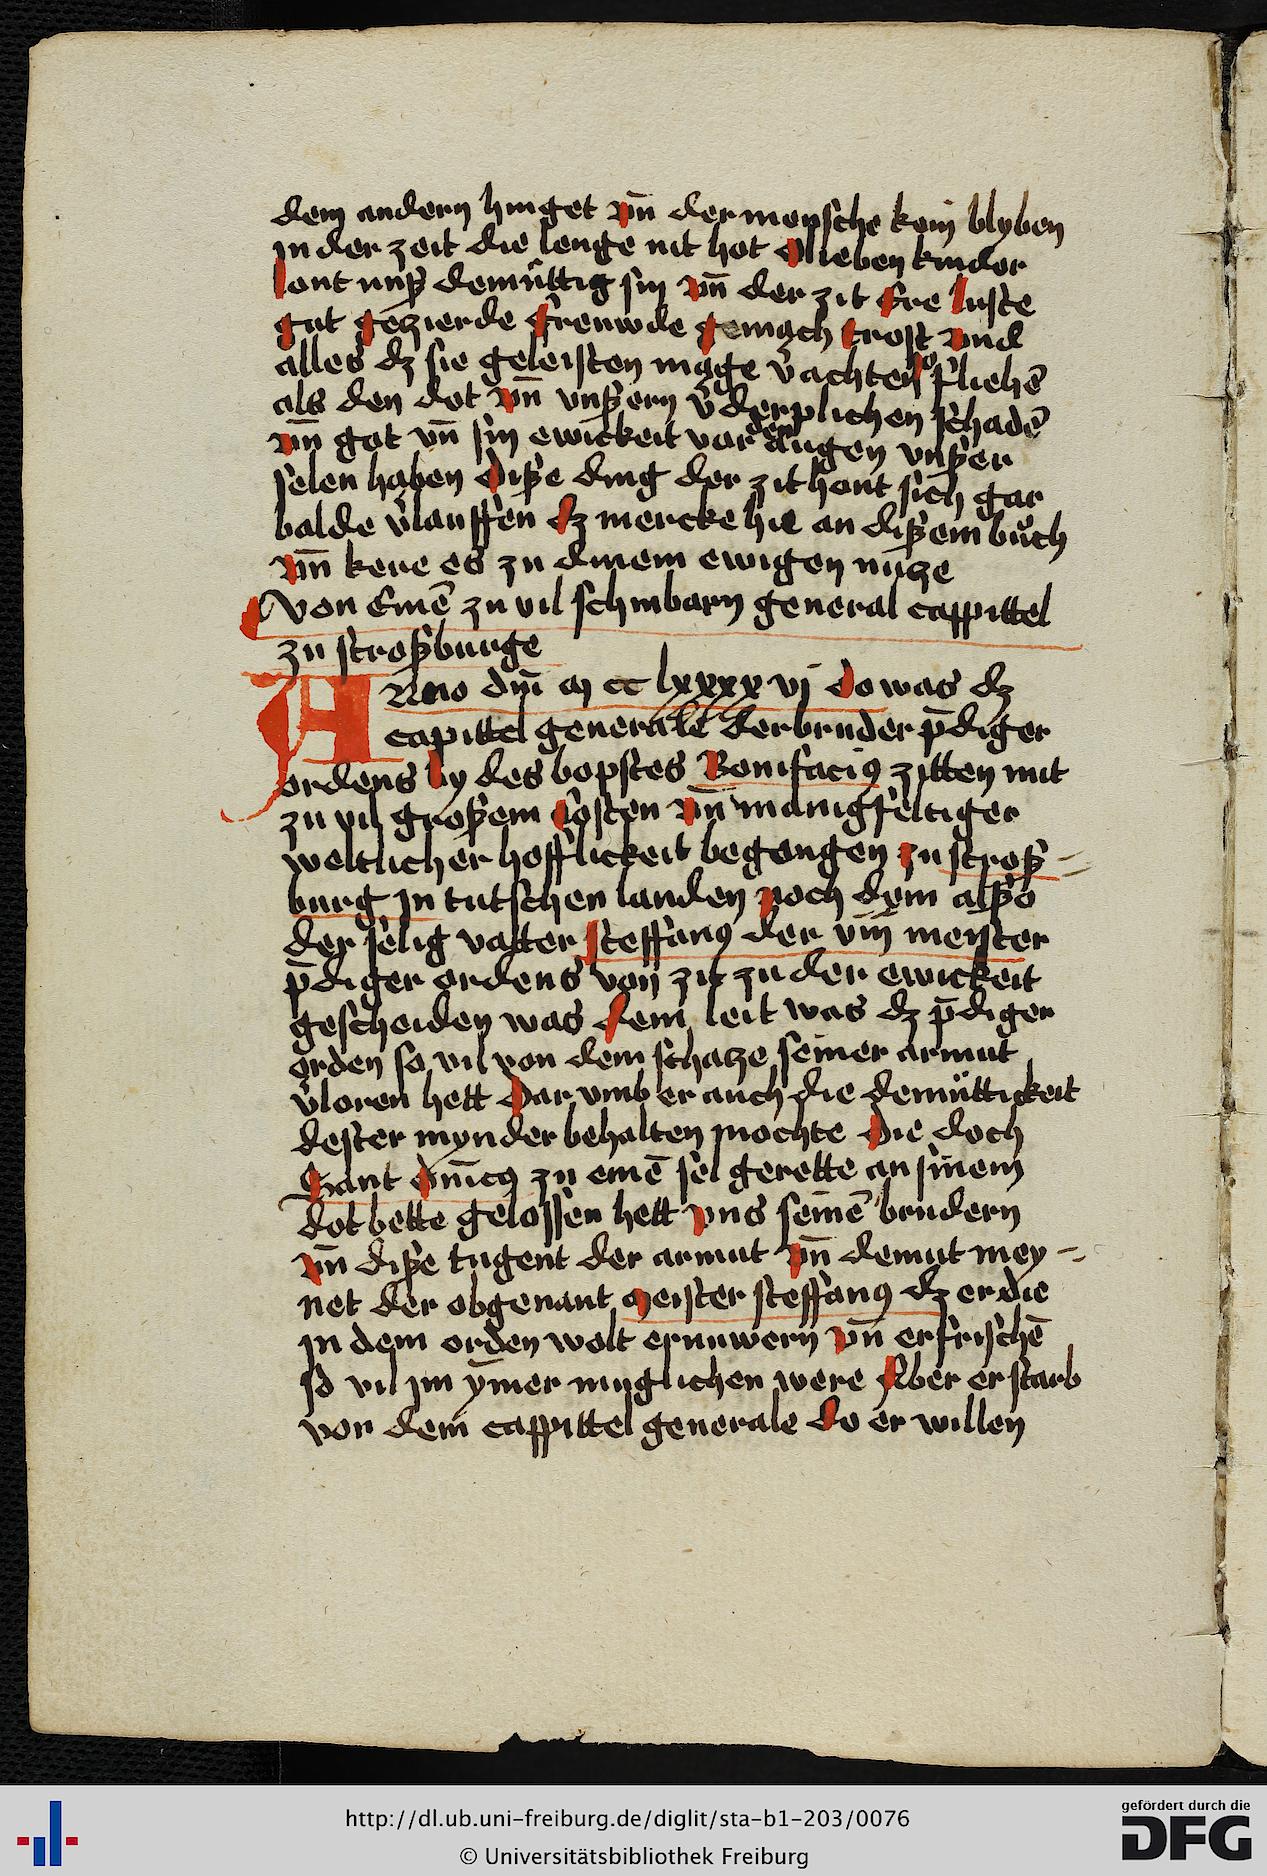 dem andern hinget vn̄ der mensche kein blyben
jn der zeit die lenge nit hot O lieben kinder
lont unß demu̍ttig sin vn̄ der zit Ere luste
gut gezierde freuwde gemach trost vnd
alles dz sie geleisten mage v̾achten so fliehē
als den dot vn̄ vnßern v̾derplichen schadē
vn̄ got vn̄ sin ewickeit vor den augen vnßer
selen haben Diße ding der zit hont sich gar
balde v̾lauffen Dz mercke hie an dißem bůch
vn̄ kere es zu dinem ewigen nutze
Von Einē zu vil schinbarn general cappittel
zu stroßburge
ANno dn̄i M cc lxxxx vj Do was dz
capittel generale der bruder p̄diger
ordens by des bopstes Bonifaciꝰ zitten mit
zu vil großem Costen vn̄ manigfeltiger
weltlicher hofflickeit begongen zu stroß-
burg jn tutschen landen noch dem alßo
der selig vatter Steffanꝰ der viij meister
p̄diger ordens von zit zu der ewickeit
gescheiden was Dem leit was dz p̄diger
orden so vil von dem schatze seiner armut
v̾loren hett Dar vmb er auch die demüttigkeit
dester mynder behalten mochte Die doch
Sant Dn̄icꝰ zu einē sel gerette an sinem
dot bette gelossen hett vns seinē brudern
vn̄ diße tugent der armut vn̄ demut mey-
net der obgenant Meister steffanꝰ dz er die
jn dem orden wolt ernuwern vn̄ erfrischē
so vil jm ȳmer muglichen were Aber er starb
vor dem cappittel generale Do er willen
http://dl.ub.uni-freiburg.de/diglit/sta-b1-203/0076
© Universitätsbibliothek Freiburg
gefördert durch die
DFG